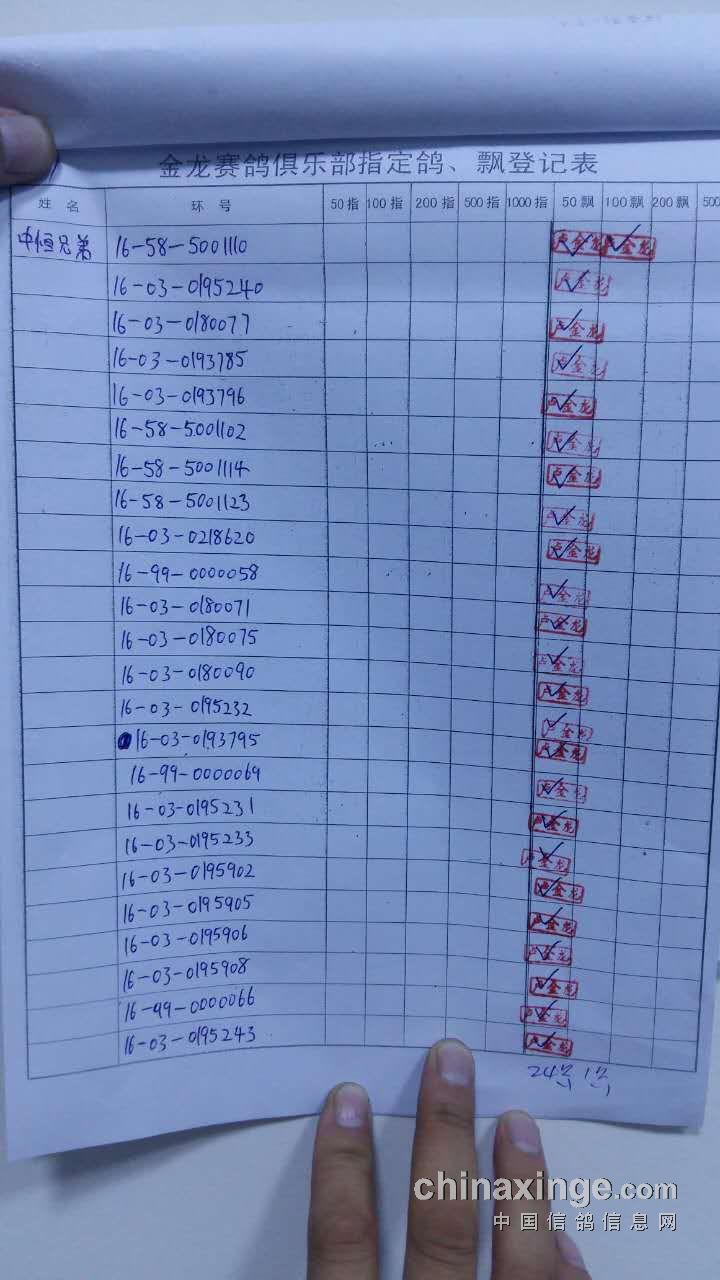 金龙赛鸽俱乐部指定鸽、飘登记表
姓 名 环 号 50指 100指 200指 500指 1000指 50飘 100飘 200飘 500
中恒兄弟 16-58-5001110 卢金龙 卢金龙
16-03-0195240 卢金龙
16-03-0180077 卢金龙
16-03-0193785 卢金龙
16-03-0193796 卢金龙
16-58-5001102 卢金龙
16-58-5001114 卢金龙
16-58-5001123 卢金龙
16-03-0218620 卢金龙
16-99-0000058 卢金龙
16-03-0180071 卢金龙
16-03-0180075 卢金龙
16-03-0180090 卢金龙
16-03-0195232 卢金龙
16-03-0193795 卢金龙
16-99-0000069 卢金龙
16-03-0195231 卢金龙
16-03-0195233 卢金龙
16-03-0195902 卢金龙
16-03-0195905 卢金龙
16-03-0195906 卢金龙
16-03-0195908 卢金龙
16-99-0000066 卢金龙
16-03-0195243 卢金龙
24 1
chinaxinge.com
中国信鸽信息网